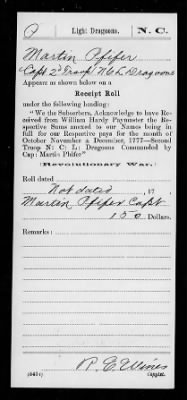 P | Light Dragoons. | N. C.
Martin Pfifer
Capt 2d Troop N C L Dragoons
Appears as shown below on a
Receipt Roll
under the following heading:
"We the Subscribers, Acknowledge to have Received from William Hardy Paymaster the Respective Sums anexed to our Names being in full for our Respective pays for the month of October November & December, 1777—Second Troop N: C: L: Dragoons Commanded by Cap: Martin Phifer"
(Revolutionary War.)
Roll dated
Not dated, 17
Martin Pfifer Capt
150 Dollars.
Remarks:
R. E. Wines
Copyist.